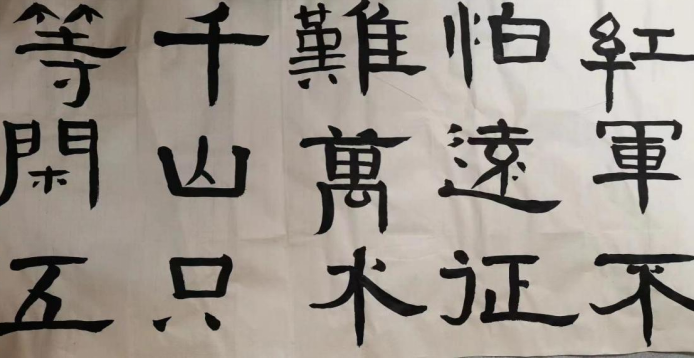 紅軍不
怕遠征
難萬水
千山只
等閑五